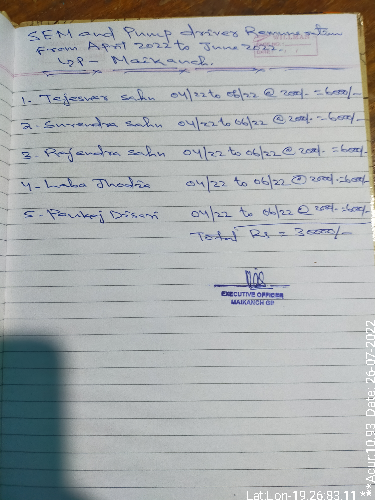 SEM and Pump driver Remuneration
From April 2022 to June 2022.
GP - Maikanch.
1- Tejeswar Sahu 04/22 to 06/22 @ 2000/- = 6000/-
2- Surendra Sahu 04/22 to 06/22 @ 2000/- = 6000/-
3- Rajendra Sahu 04/22 to 06/22 @ 2000/- = 6000/-
4- Laba Jhodia 04/22 to 06/22 @ 2000/- = 6000/-
5- Pankaj Disari 04/22 to 06/22 @ 2000/- = 6000/-
Total Rs = 30000/-
EXECUTIVE OFFICER
MAIKANCH GP
Lat Lon-19.26:83.11 ***Acur:10.93 Date: 26-07-2022